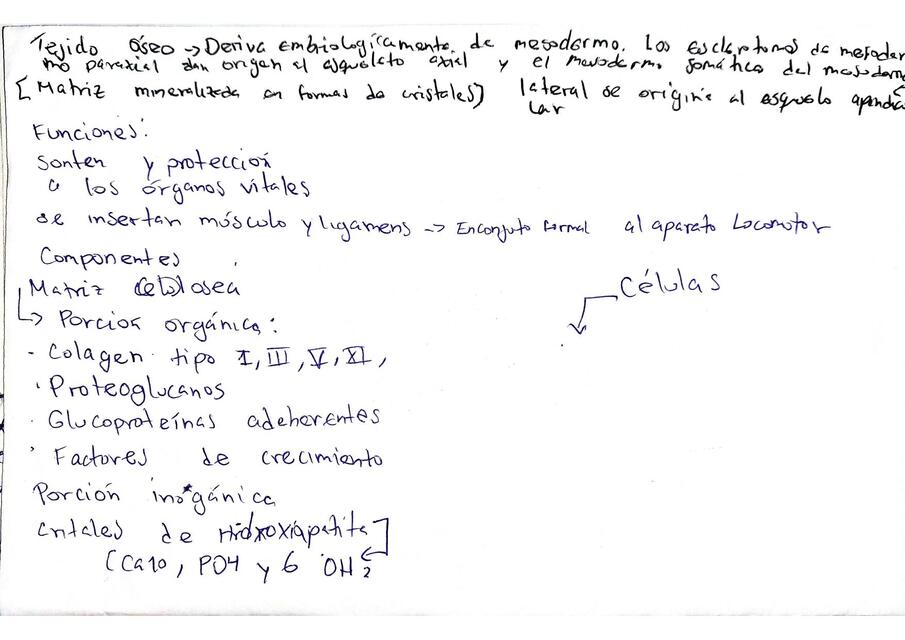 Tejido óseo → Deriva embriologicamente de mesodermo. Los esclerotomos de mesoder
mo paraxial dan origen al esqueleto axial y el mesodermo somático del mesoderm
[Matriz mineralizada en formas de cristales] lateral se origina al esquelo apendic
lar
Funciones:
Sonten y protección
a los órganos vitales
se insertan músculo y ligamens → En conjuto formal al aparato Locomotor
Componentes
Matriz osea
Células
↳ Porcion orgánica:
- Colagen tipo I, III, V, XI,
· Proteoglucanos
· Glucoproteínas adeherentes
· Factores de crecimiento
Porción inogánica
Cristales de Hidroxiapatita
(Ca10, PO4 y 6 OH2